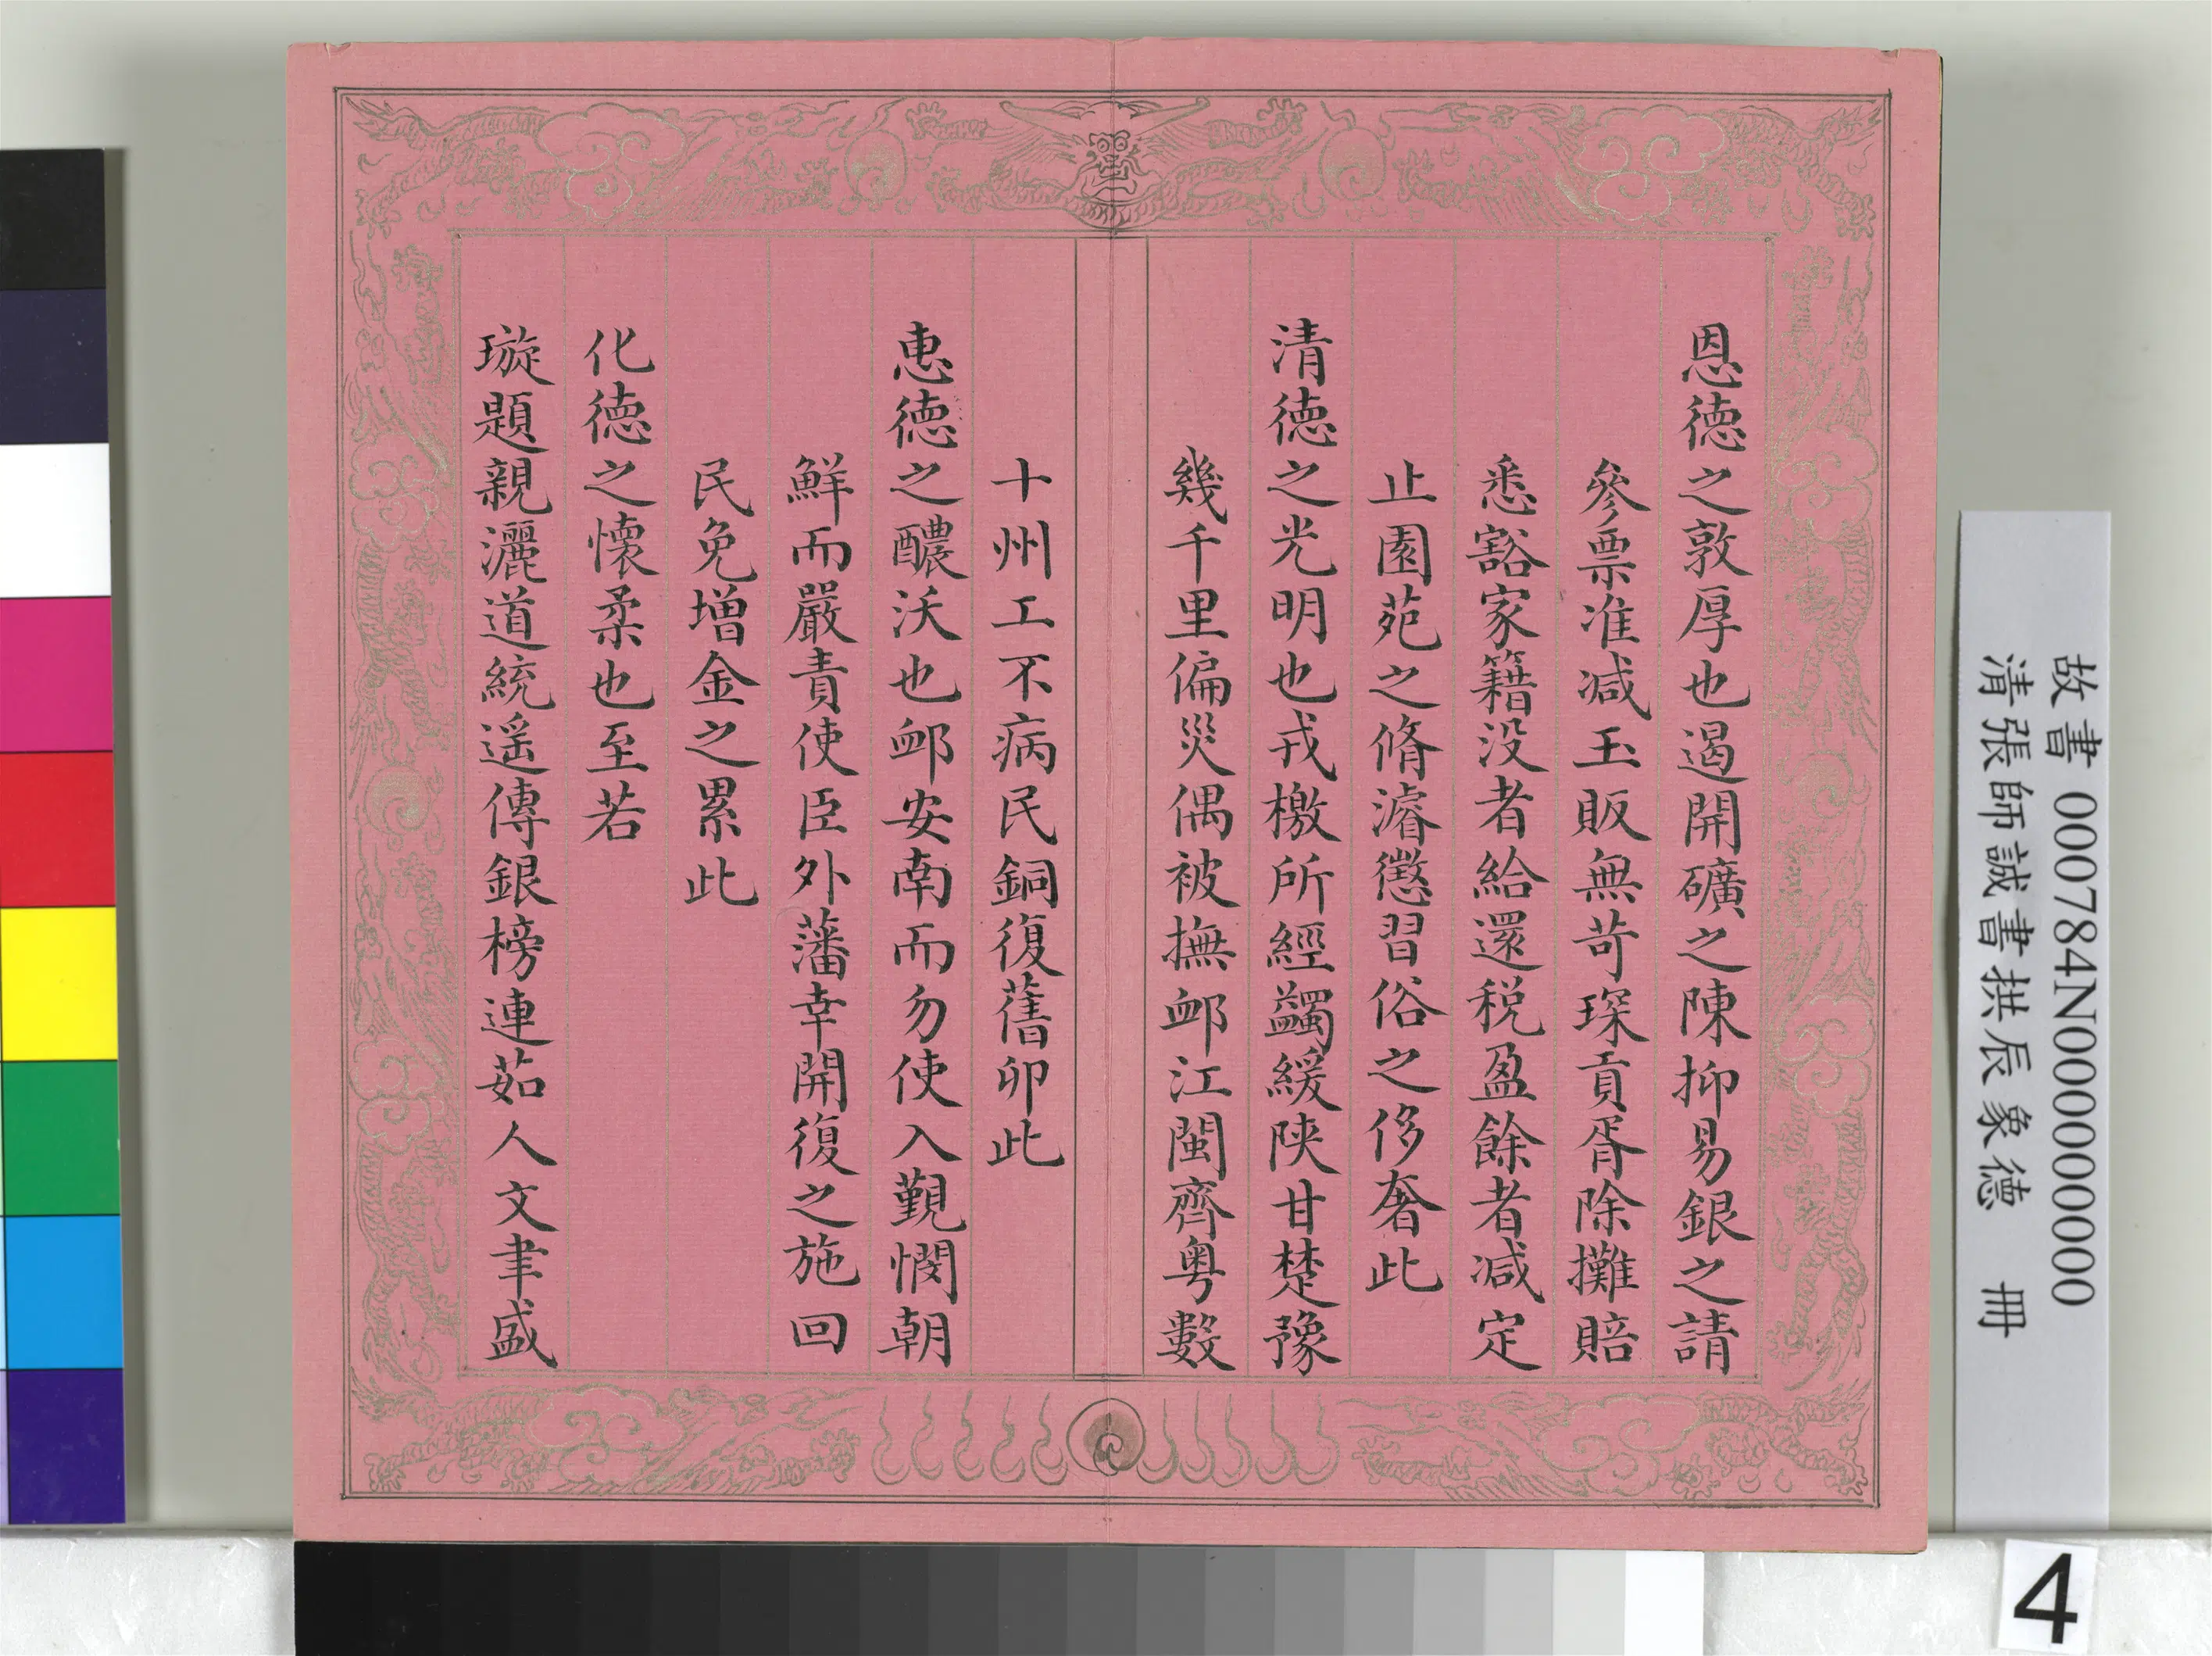 恩德之敦厚也遏開礦之陳抑易銀之請
參票准减玉販無苛琛貢胥除攤賠
悉豁家籍没者給還税盈餘者减定
止園苑之脩濬懲習俗之侈奢此
清德之光明也戎檄所經蠲緩陝甘楚豫
幾千里偏災偶被撫䘏江閩齊粤數
十州工不病民銅復舊卯此
惠德之醲沃也䘏安南而勿使入覲憫朝
鮮而嚴責使臣外藩幸開復之施回
民免增金之累此
化德之懷柔也至若
璇題親灑道統遥傳銀榜連茹人文聿盛
故書 000784N000000000
清張師誠書拱辰象德 冊
4